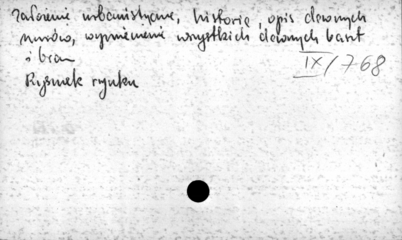 założenie urbanistyczne, historię, opis dawnych
murów, wymienienie wszystkich dawnych baszt
i bram
IX/768
Rysunek rynku